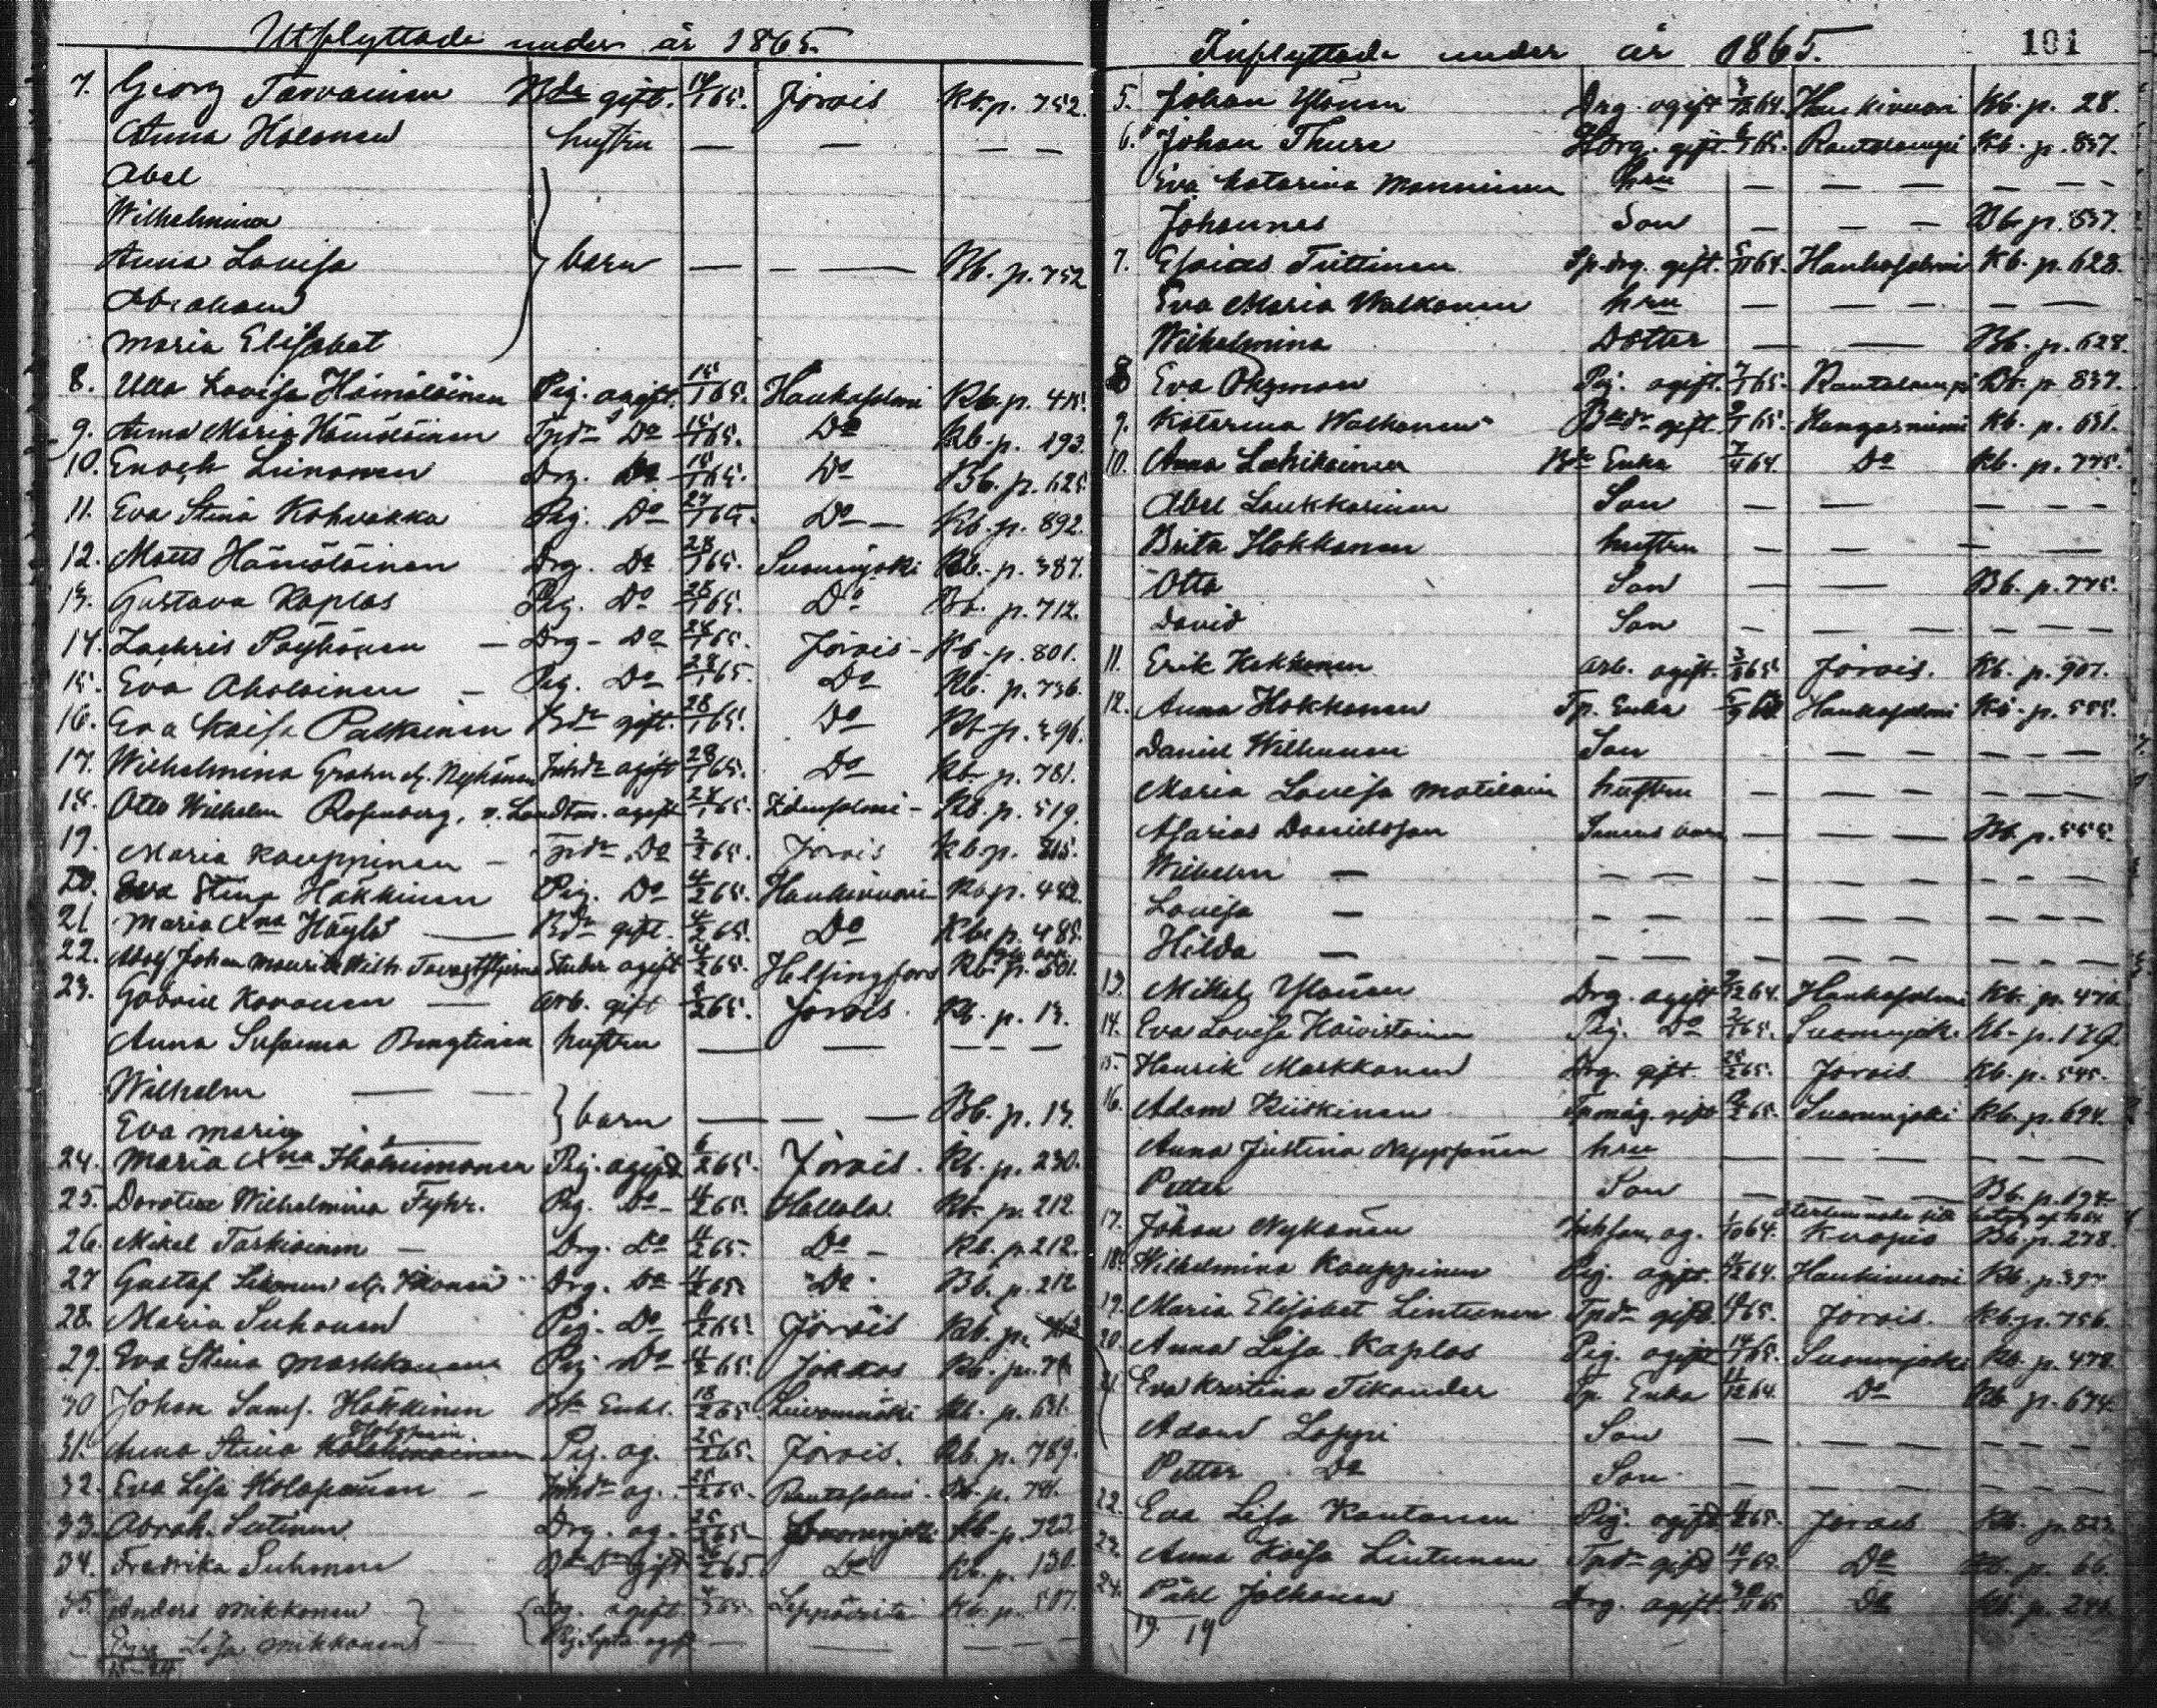 Utflyttade under år 1865.
7. Georg Tarvainen Bde gift. 14/1 65. Jorois Kb. p. 752.
Anna Holonen hustru — — — —
Abel
Wilhelmina
Anna Lovisa } barn — — — Bb. p. 752
Abraham
Maria Elisabet
8. Ulla Lovisa Hämäläinen Pig. ogift. 15/1 65. Hankasalmi Kb. p. 415.
9. Anna Maria Hämäläinen Tpdr Do 15/1 65. Do Kb. p. 193.
10. Enoch Liinanen Drg. Do 15/1 65. Do Bb. p. 625
11. Eva Stina Kohvakka Pig. Do 27/1 65. Do — Kb. p. 892.
12. Matts Hämäläinen Drg. Do 28/1 65. Suonnejoki Kb. p. 387.
13. Gustava Kaplas Pig. Do 28/1 65. Do Bb. p. 712.
14. Zachris Pöyhönen — Drg — Do 28/1 65. Jorois — Kb. p. 801.
15. Eva Aholainen — Pig. Do 28/1 65. Do Kb. p. 736.
16. Eva Kaisa Pulkkinen Bdr gift. 28/1 65. Do Kb. p. 396.
17. Wilhelmina Grahn ogift 28/1 65. Do Kb. p. 781.
18. Otto Wilhelm Rosenberg, ogift 28/1 65. Idensalmi — Kb. p. 519.
19. Maria Kauppinen — Tpdr Do 3/2 65. Jorois Kb. p. 815.
20. Eva Stina Häkkinen Pig. Do 4/2 65. Haukivuori Kb. p. 482.
21 Maria Höylä — Bdr gift. 4/2 65. Do Kb. p. 485.
22. Adolf Johan Mauritz Wilh. Tavaststjerna Studer. ogift 4/2 65. Helsingfors Kb. p. 501.
23. Gabriel Kovanen — Arb. gift 5/2 65. Jorois. Kb. p. 13.
Anna Susanna Bengtinen hustru — — — — —
Wilhelm — } barn — — — Bb. p. 13.
Eva Maria —
24. Maria Ihalainen Pig. ogift 6/2 65. Jorois. Kb. p. 230.
25. Dorotea Wilhelmina Fyhr. Pig. Do 11/2 65. Hollola. Kb. p. 212
26. Mikel Tarkiainen — Drg. Do 11/2 65. Do — Kb. p. 212.
27 Gustaf Drg. Do 11/2 65 Do. Bb. p. 212
28. Maria Suhonen Pig. Do 11/2 65. Jorois Kb. p.
29. Eva Stina Markkanen Pig. Do 11/2 65. Jokkas Kb. p.
30 Johan Häkkinen Enkl. 18/2 65. Kb. p. 631.
31. Anna Stina Holopain. Pig. og. 25/2 65. Jorois. Kb. p. 789.
32. Eva Lisa Holopainen — Inhdr og. 25/2 65. Rantasalmi. Kb. p. 741.
33. Abrah. Sutinen Drg. og. 25/2 65. Suonnejoki Kb. p. 723
34. Fredrika Suhonen gift 26/2 65. Do Kb. p. 130.
35. Anders Mikkonen } { Drg. ogift 65. Leppävirta Kb. p. 507.
Lisa Mikkonen ogift — — — —
Inflyttade under år 1865. 101
5. Johan Ylönen Drg. ogift 64. Haukivuori Kb. p. 28.
6. Johan Thure Drg. gift. 65. Rautalampi Kb. p. 837.
Eva Katarina Manninen hru — — — — — —
Johannes Son — — — Bb. p. 837.
7. Esaias Tiittinen Sp.drg. gift. 64. Hankasalmi Kb. p. 628.
Eva Maria Walkonen hru — — — — —
Wilhelmina Dotter — — Bb. p. 628.
8 Eva Öhman Pig. ogift. 7/1 65. Rautalampi Kb. p 837.
9. Katarina Walkonen gift. 9/1 65. Kangasniemi Kb. p. 631.
10. Anna Laitikainen Enka 7/4 64. Do Kb. p. 775.
Abel Laukkarinen Son — — — — —
Brita Hokkanen hustru — — — —
Otto Son — — Bb. p. 775.
David Son — — — — — —
11. Erik Hokkanen Arb. ogift. 65. Jorois. Kb. p. 907.
12. Anna Hokkanen Tp. Enka Hankasalmi Kb. p. 555.
Daniel Wilhunen Son — — — — —
Maria Lovisa hustru — — — — — —
Asarias Danielsson — — — Bb. p. 555.
Wilhelm — — — — — — — —
Lovisa — — — — — — — —
Hilda — — — — — — — —
13. Mikel Ylönen Drg. ogift 9/12 64. Hankasalmi Kb. p. 476
14. Eva Lovisa Koivistoinen Pig. Do 65. Suonnejoki. Kb. p. 179.
15. Henrik Markkanen Drg. gift. 25/2 65. Jorois. Kb. p. 545.
16. Adam Kiiskinen gift 65. Suonnejoki Kb. p. 694.
Anna Justina hru — — — — — —
Petter Son — — — — Bb. p. 694.
17. Johan Nykänen og. 1/10 64. Kuopio Bb. p. 278.
18. Wilhelmina Kauppinen Pig. ogift. 64. Haukivuori Kb. p. 397
19. Maria Elisabet Lintunen Tpdr gift. 65. Jorois. Kb. p. 756.
20. Anna Lisa Kaplas Pig. ogift 14/1 65. Suonnejoki Kb. p. 478.
21. Eva Kristina Tikander Tp. Enka 11/12 64. Do Kb p. 674.
Adam Lappi Son — — — — — —
Petter Do Son — — — — — —
22. Eva Lisa Kautonen Pig. ogift 65. Jorois Kb. p.
23. Anna Kaisa Lintunen Tpdr gift 10/1 65. Do Kb. p. 66.
24. Påhl Jalkanen Drg. ogift. 65 Do Kb. p.
19. 19